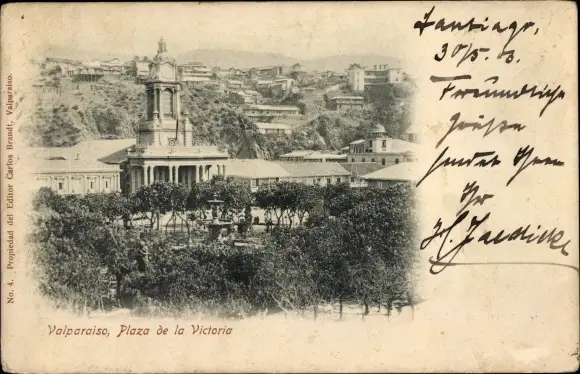 No. 4. Propiedad del Editor Carlos Brandt, Valparaiso.
Valparaiso, Plaza de la Victoria
Santiago,
30/5. 3.
Freundliche
Grüße
sendet Ihnen
Ihr